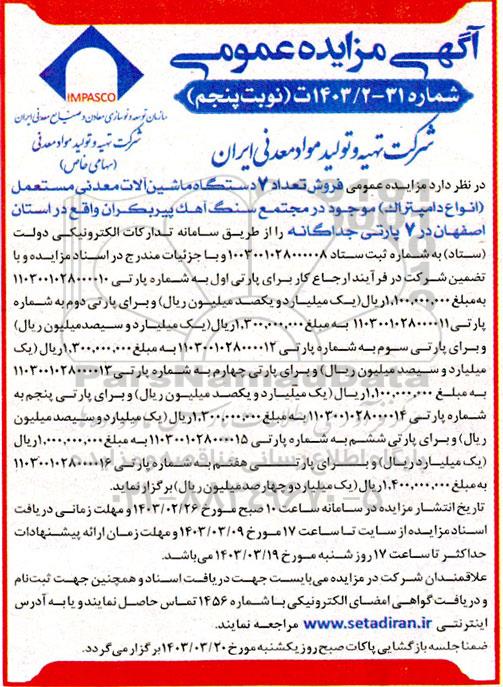 آگهی مزایده عمومی
شماره ۳۱-۱۴۰۳/۲ت (نوبت پنجم)
IMPASCO
سازمان توسعه و نوسازی معادن و صنایع معدنی ایران
شرکت تهیه و تولید مواد معدنی
(سهامی خاص)
شرکت تهیه و تولید مواد معدنی ایران
در نظر دارد مزایده عمومی فروش تعداد ۷ دستگاه ماشین‌آلات معدنی مستعمل
(انواع دامپتراک) موجود در مجتمع سنگ آهک پیربکران واقع در استان
اصفهان در ۷ پارتی جداگانه را از طریق سامانه تدارکات الکترونیکی دولت
(ستاد) به شماره ثبت ستاد ۱۰۰۳۰۰۱۰۲۸۰۰۰۰۰۸ و با جزئیات مندرج در اسناد مزایده و با
تضمین شرکت در فرآیند ارجاع کار برای پارتی اول به شماره پارتی ۱۱۰۳۰۰۱۰۲۸۰۰۰۰۱۰
به مبلغ ۱,۱۰۰,۰۰۰,۰۰۰ ریال (یک میلیارد و یکصد میلیون ریال) و برای پارتی دوم به شماره
پارتی ۱۱۰۳۰۰۱۰۲۸۰۰۰۰۱۱ به مبلغ ۱,۳۰۰,۰۰۰,۰۰۰ ریال (یک میلیارد و سیصد میلیون ریال)
و برای پارتی سوم به شماره پارتی ۱۱۰۳۰۰۱۰۲۸۰۰۰۰۱۲ به مبلغ ۱,۳۰۰,۰۰۰,۰۰۰ ریال (یک
میلیارد و سیصد میلیون ریال) و برای پارتی چهارم به شماره پارتی ۱۱۰۳۰۰۱۰۲۸۰۰۰۰۱۳
به مبلغ ۱,۱۰۰,۰۰۰,۰۰۰ ریال (یک میلیارد و یکصد میلیون ریال) و برای پارتی پنجم به
شماره پارتی ۱۱۰۳۰۰۱۰۲۸۰۰۰۰۱۴ به مبلغ ۱,۳۰۰,۰۰۰,۰۰۰ ریال (یک میلیارد و سیصد میلیون
ریال) و برای پارتی ششم به شماره پارتی ۱۱۰۳۰۰۱۰۲۸۰۰۰۰۱۵ به مبلغ ۱,۰۰۰,۰۰۰,۰۰۰ ریال
(یک میلیارد ریال) و برای پارتی هفتم به شماره پارتی ۱۱۰۳۰۰۱۰۲۸۰۰۰۰۱۶
به مبلغ ۱,۴۰۰,۰۰۰,۰۰۰ ریال (یک میلیارد و چهارصد میلیون ریال) برگزار نماید.
تاریخ انتشار مزایده در سامانه ساعت ۱۰ صبح مورخ ۱۴۰۳/۰۲/۲۶ و مهلت زمانی دریافت
اسناد مزایده از سایت تا ساعت ۱۷ مورخ ۱۴۰۳/۰۳/۰۹ و مهلت زمان ارائه پیشنهادات
حداکثر تا ساعت ۱۷ روز شنبه مورخ ۱۴۰۳/۰۳/۱۹ می‌باشد.
علاقمندان شرکت در مزایده می‌بایست جهت دریافت اسناد و همچنین جهت ثبت‌نام
و دریافت گواهی امضای الکترونیکی با شماره ۱۴۵۶ تماس حاصل نمایند و یا به آدرس
اینترنتی www.setadiran.ir مراجعه نمایند.
ضمنا جلسه بازگشایی پاکات صبح روز یکشنبه مورخ ۱۴۰۳/۰۳/۲۰ برگزار می‌گردد.
ParsNamadData
پایگاه اطلاع رسانی مناقصه و مزایده
۰۲۱-۸۸۳۴۹۶۷۰-۵